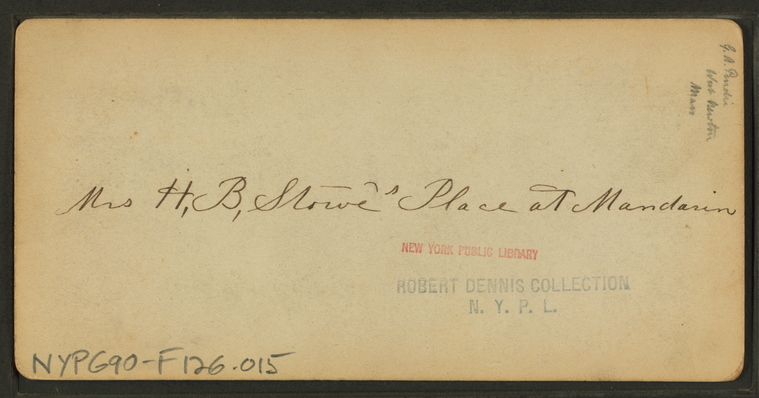 G. A.
West Newton
Mass
Mrs H, B, Stowe's Place at Mandarin
NEW YORK PUBLIC LIBRARY
ROBERT DENNIS COLLECTION
N. Y. P. L.
NYPG90-F126.015